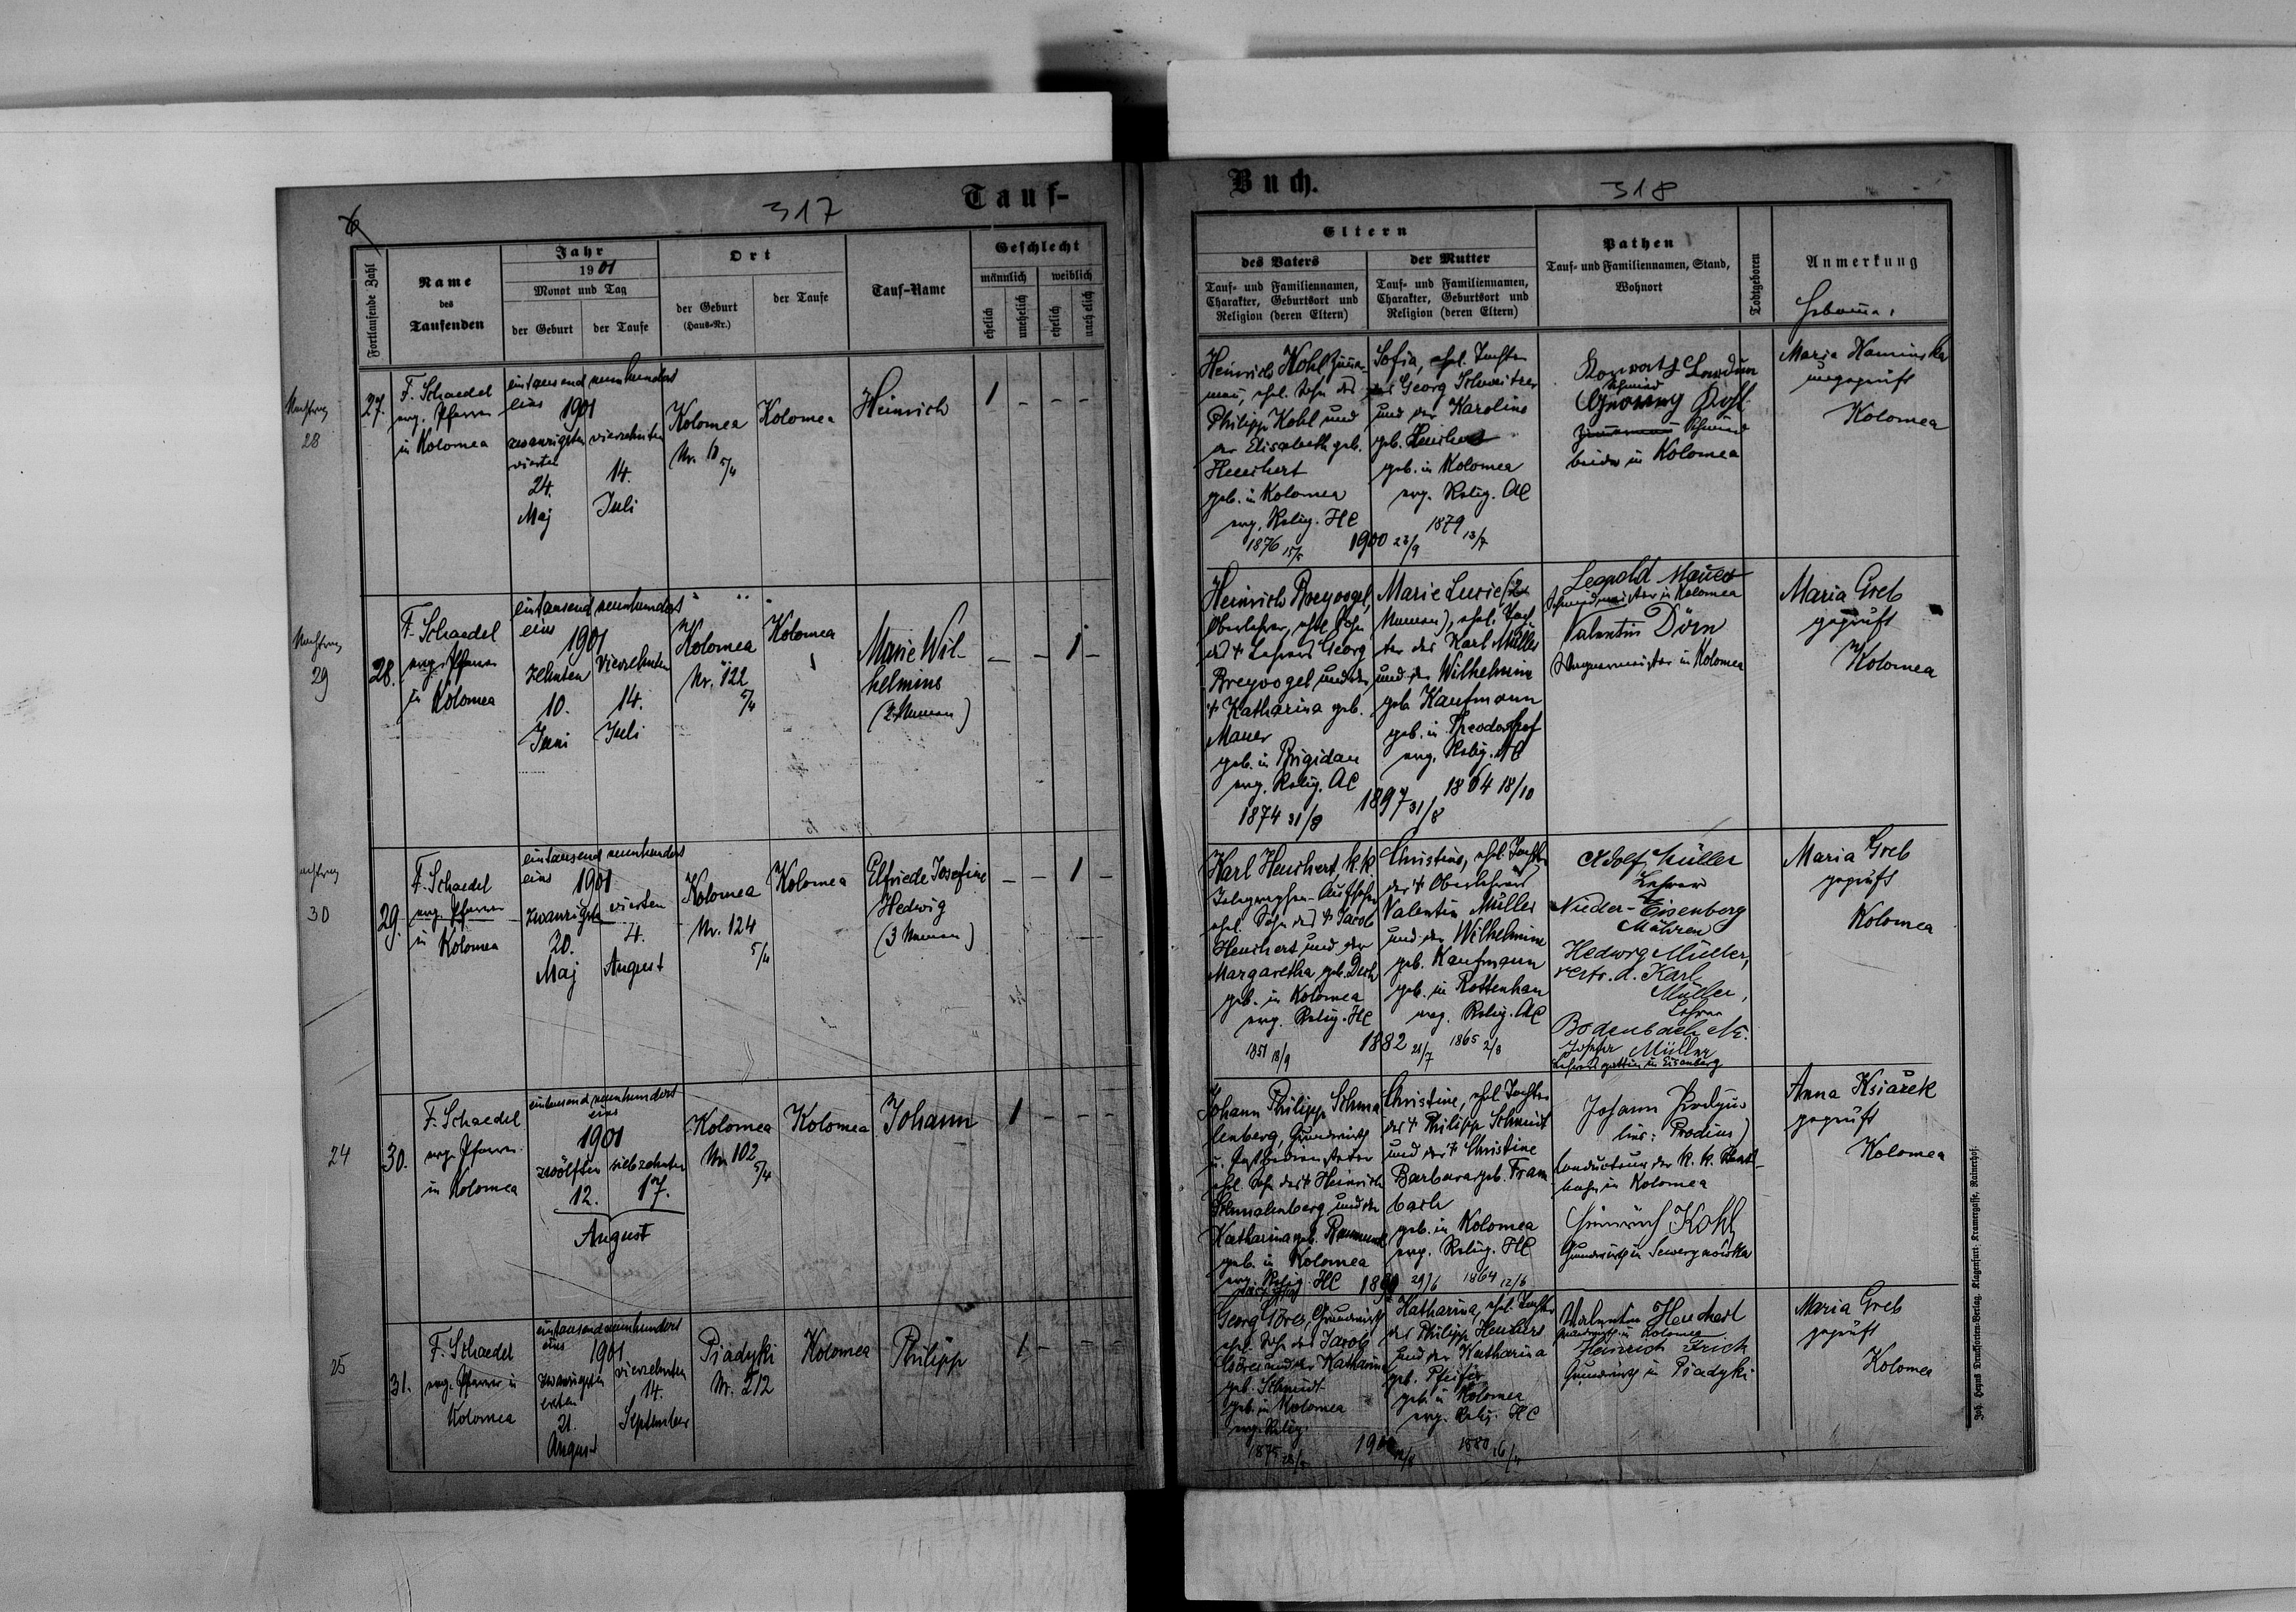 317
Tauf-
Fortlaufende Zahl
Name
des
Taufenden
Jahr
1901
Monat und Tag
der Geburt
der Taufe
Ort
der Geburt
(Haus-Nr.)
der Taufe
Tauf-Name
Geschlecht
männlich
weiblich
ehelich
unehelich
ehelich
28
27.
F. Schaedel
evg. Pfarrer
in Kolomea
eintausend neunhundert
eins 1901
zwanzigsten
vierten
24.
Maj
vierzehnten
14.
Juli
Kolomea
Nr. 10
5/4
Kolomea
Heinrich
1 – – –
29
28.
F. Schaedel
evg. Pfarrer
in Kolomea
eintausend neunhundert
eins
1901
zehnten
10.
Juni
vierzehnten
14.
Juli
Kolomea
Nr. 122
5/4
Kolomea
Marie Wil-
helmine
(2 Namen)
– – 1 –
30
29.
F. Schaedel
evg. Pfarrer
in Kolomea
eintausend neunhundert
eins 1901
zwanzigsten
20.
Maj
vierten
4.
August
Kolomea
Nr. 124
5/4
Kolomea
Elfriede Josefine
Hedwig
(3 Namen)
– – 1 –
24
30.
F. Schaedel
evg. Pfarrer
in Kolomea
eintausend neunhundert
eins
1901
zwölften
12.
siebzehnten
17.
August
Kolomea
Nr. 102
5/4
Kolomea
Johann
1 – – –
25
31.
F. Schaedel
evg. Pfarrer in
Kolomea
eintausend neunhundert
eins
1901
zwanzigsten
ersten
21.
August
vierzehnten
14.
September
Piadyki
Nr. 212
Kolomea
Philipp
1 – – –
Buch.
318
Eltern
des Vaters
Tauf- und Familiennamen,
Charakter, Geburtsort und
Religion (deren Eltern)
der Mutter
Tauf- und Familiennamen,
Charakter, Geburtsort und
Religion (deren Eltern)
Pathen
Tauf- und Familiennamen, Stand,
Wohnort
Todtgeboren
Anmerkung
Heinrich Kohl Zimmer-
mann, ehel. Sohn des
Philipp Kohl und
der Elisabeth geb.
Heuchert
geb. in Kolomea
evg. Relig. HC
1876 15/5
1900 23/9
Sofia, ehel. Tochter
des Georg Schweitzer
und der Karoline
geb. Heuchert
geb. in Kolomea
evg. Relig. AC
1879 13/7
Schmied
Schmied
beide in Kolomea
Maria Kaminska
ungeprüft
Kolomea
Heinrich Breyvogel,
Oberlehrer, ehel. Sohn
des + Lehrers Georg
Breyvogel und der
+ Katharina geb.
Mauer
geb. in Brigidau
evg. Relig. AC
1874 31/8
1897 31/8
Marie Lucie (2
Namen), ehel. Toch-
ter des Karl Müller
und der Wilhelmine
geb. Kaufmann
geb. in Theodorshof
evg. Relig. AC
1864 18/10
Leopold Mauer
Schmiedmeister in Kolomea
Valentin Dörn
Wagnermeister in Kolomea
Maria Greb
geprüft
Kolomea
Karl Heuchert, k.k.
Telegraphen-Aufseher
ehel. Sohn des + Jacob
Heuchert und der
Margaretha geb. Desch
geb. in Kolomea
evg. Relig. HC
1851 18/9
1882 28/7
Christine, ehel. Tochter
des + Oberlehrers
Valentin Müller
und der Wilhelmine
geb. Kaufmann
geb. in Rottenhan
evg. Relig. AC
1865 2/8
Adolf Müller
Lehrer
Nieder-Eisenberg
Mähren
Hedwig Müller,
vertr. d. Karl
Müller,
Lehrer
Bodenbach
Josefa Müller
Lehrersgattin in Eisenberg
Maria Greb
geprüft
Kolomea
Johann Philipp Schma
lenberg, Grundwirth
ehel. Sohn des + Heinrich
Schmalenberg und der
Katharina geb.
geb. in Kolomea
evg. Relig. HC
29/6
Christine, ehel. Tochter
des + Philipp Schmidt
und der + Christine
Barbara geb. Fram
bach
geb. in Kolomea
evg. Relig. HC
1864 12/6
Johann Prodyus
(lies: Prodius)
Conducteur der k. k. Staats-
bahn in Kolomea
Heinrich Kohl
Grundwirth in Sewerynówka
Anna Ksiażek
geprüft
Kolomea
Georg Göres, Grundwirth
ehel. Sohn des Jacob
Göres und der Katharina
geb. Schmidt
geb. in Kolomea
evg. Relig.
1875
Katharina, ehel. Tochter
des Philipp Heuchert
und der Katharina
geb. Pfeifer
geb. in Kolomea
evg. Relig. HC
1880 16/4
Valentin Heuchert
Grundwirth in Kolomea
Heinrich Frich
Grundwirth in Piadyki
Maria Greb
geprüft
Kolomea
Joh. Heyns Druckforten-Verlag. Klagenfurt: Kramergasse, Rainerhof.